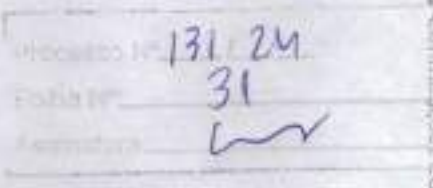 Processo Nº 131/24
Folha Nº 31
Assinatura